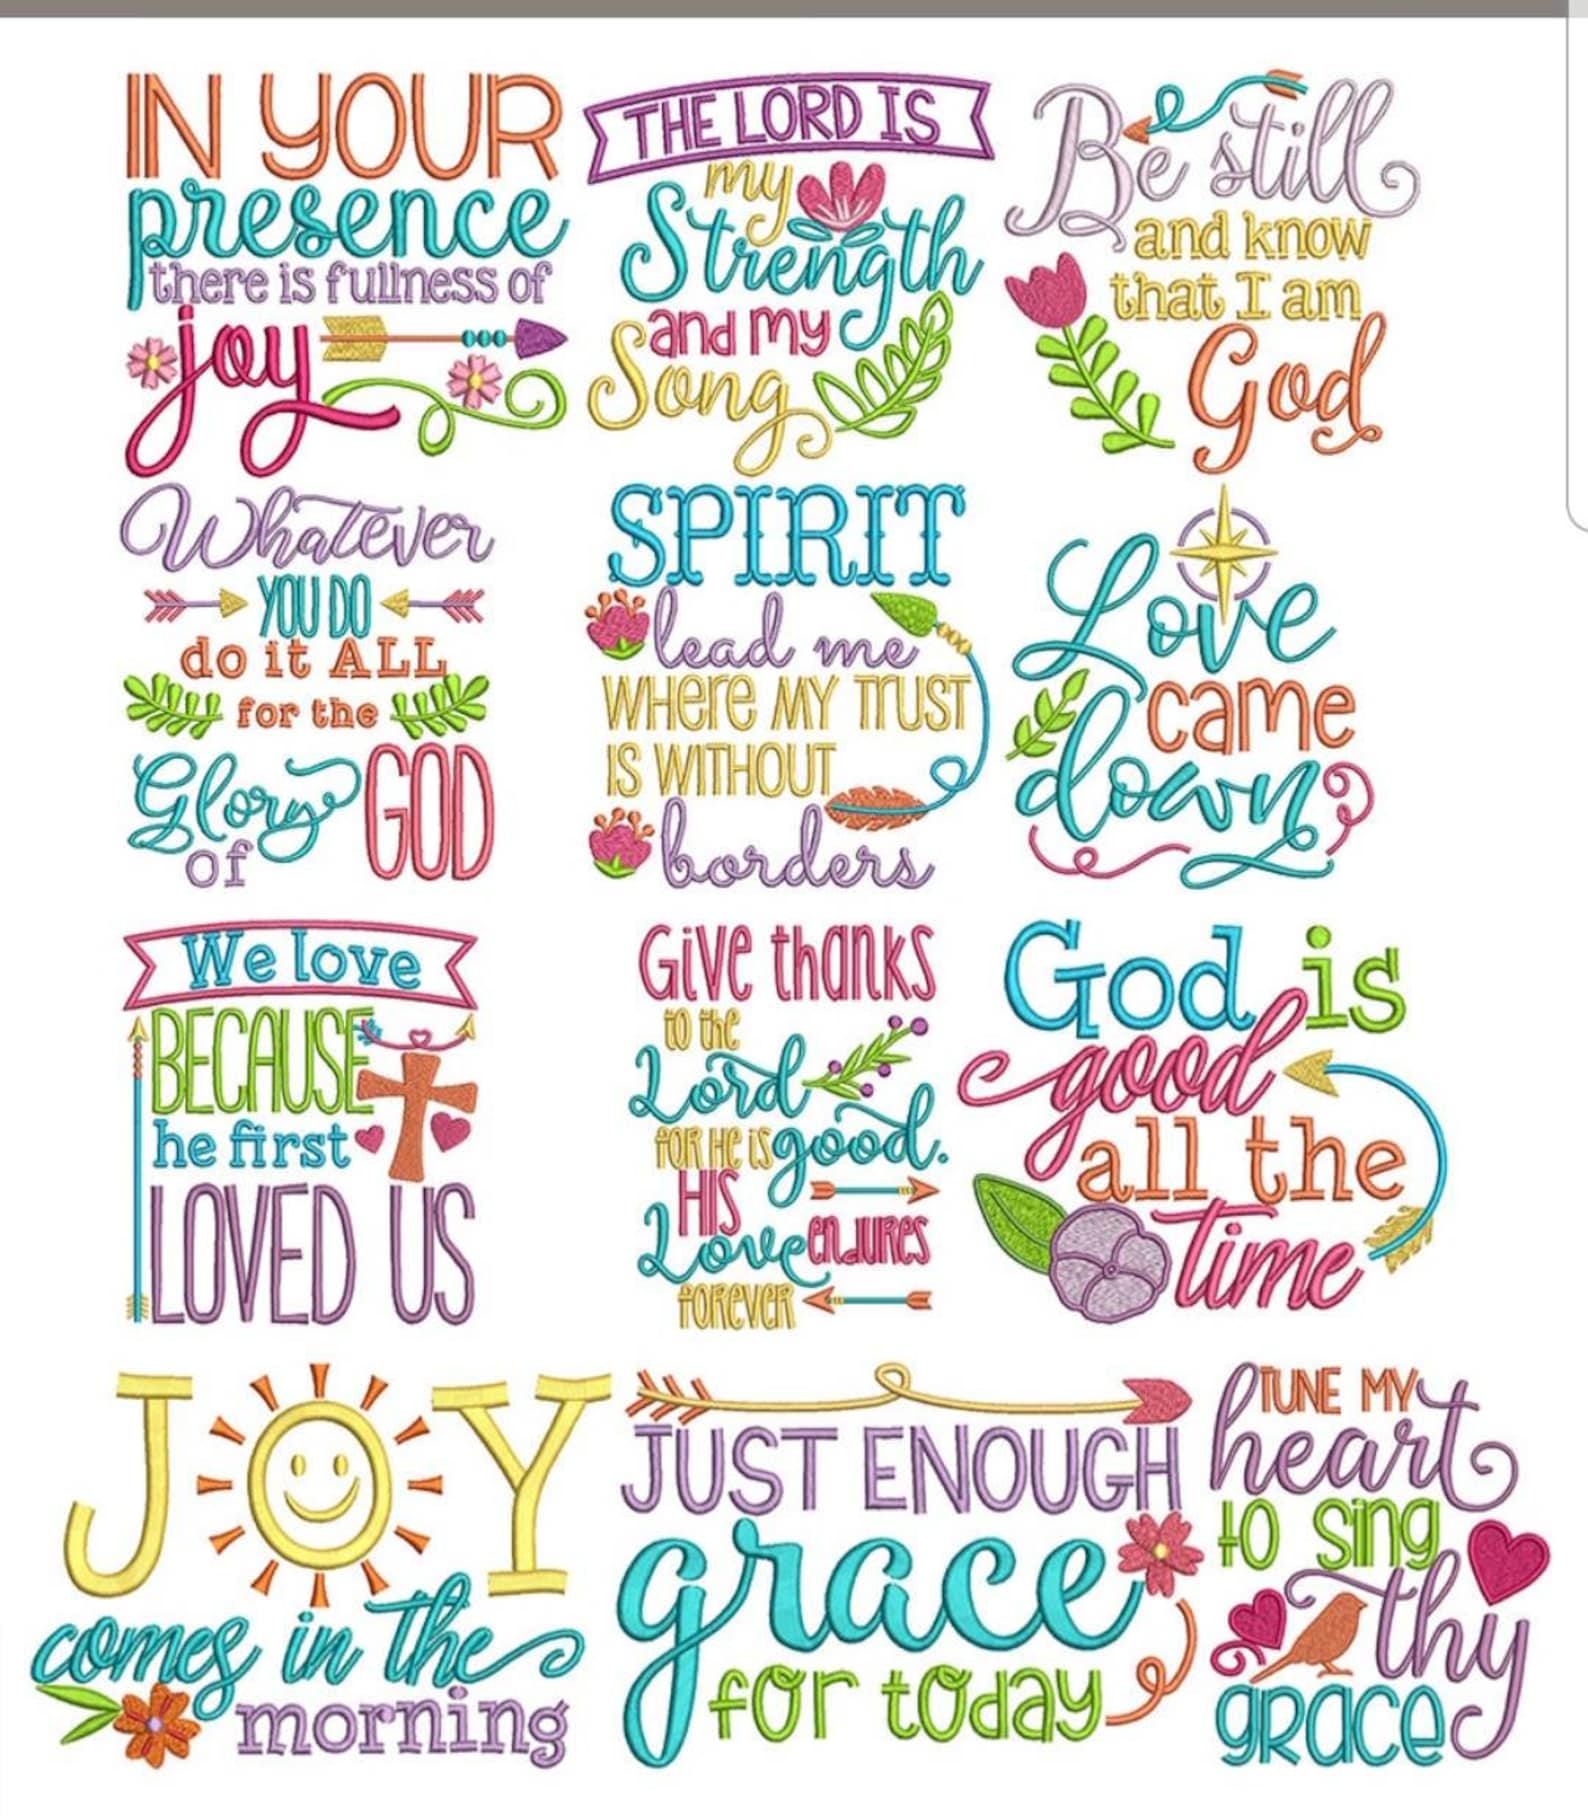 IN YOUR
presence
there is fullness of
joy
THE LORD IS
my
Strength
and my
Song
Be still
and know
that I am
God
Whatever
YOU DO
do it ALL
for the
Glory
of GOD
SPIRIT
lead me
WHere MY TrUST
IS WITHOUT
borders
Love
came
down
We love
BECAUSE
he first
LOVED US
Give thanks
to the
Lord
FOR He IS good.
HIS
Love enDURES
FOREVER
God is
good
all the
time
JOY
comes in the
morning
JUST ENOUGH
grace
for today
TUNE MY
heart
to sing
thy
grace